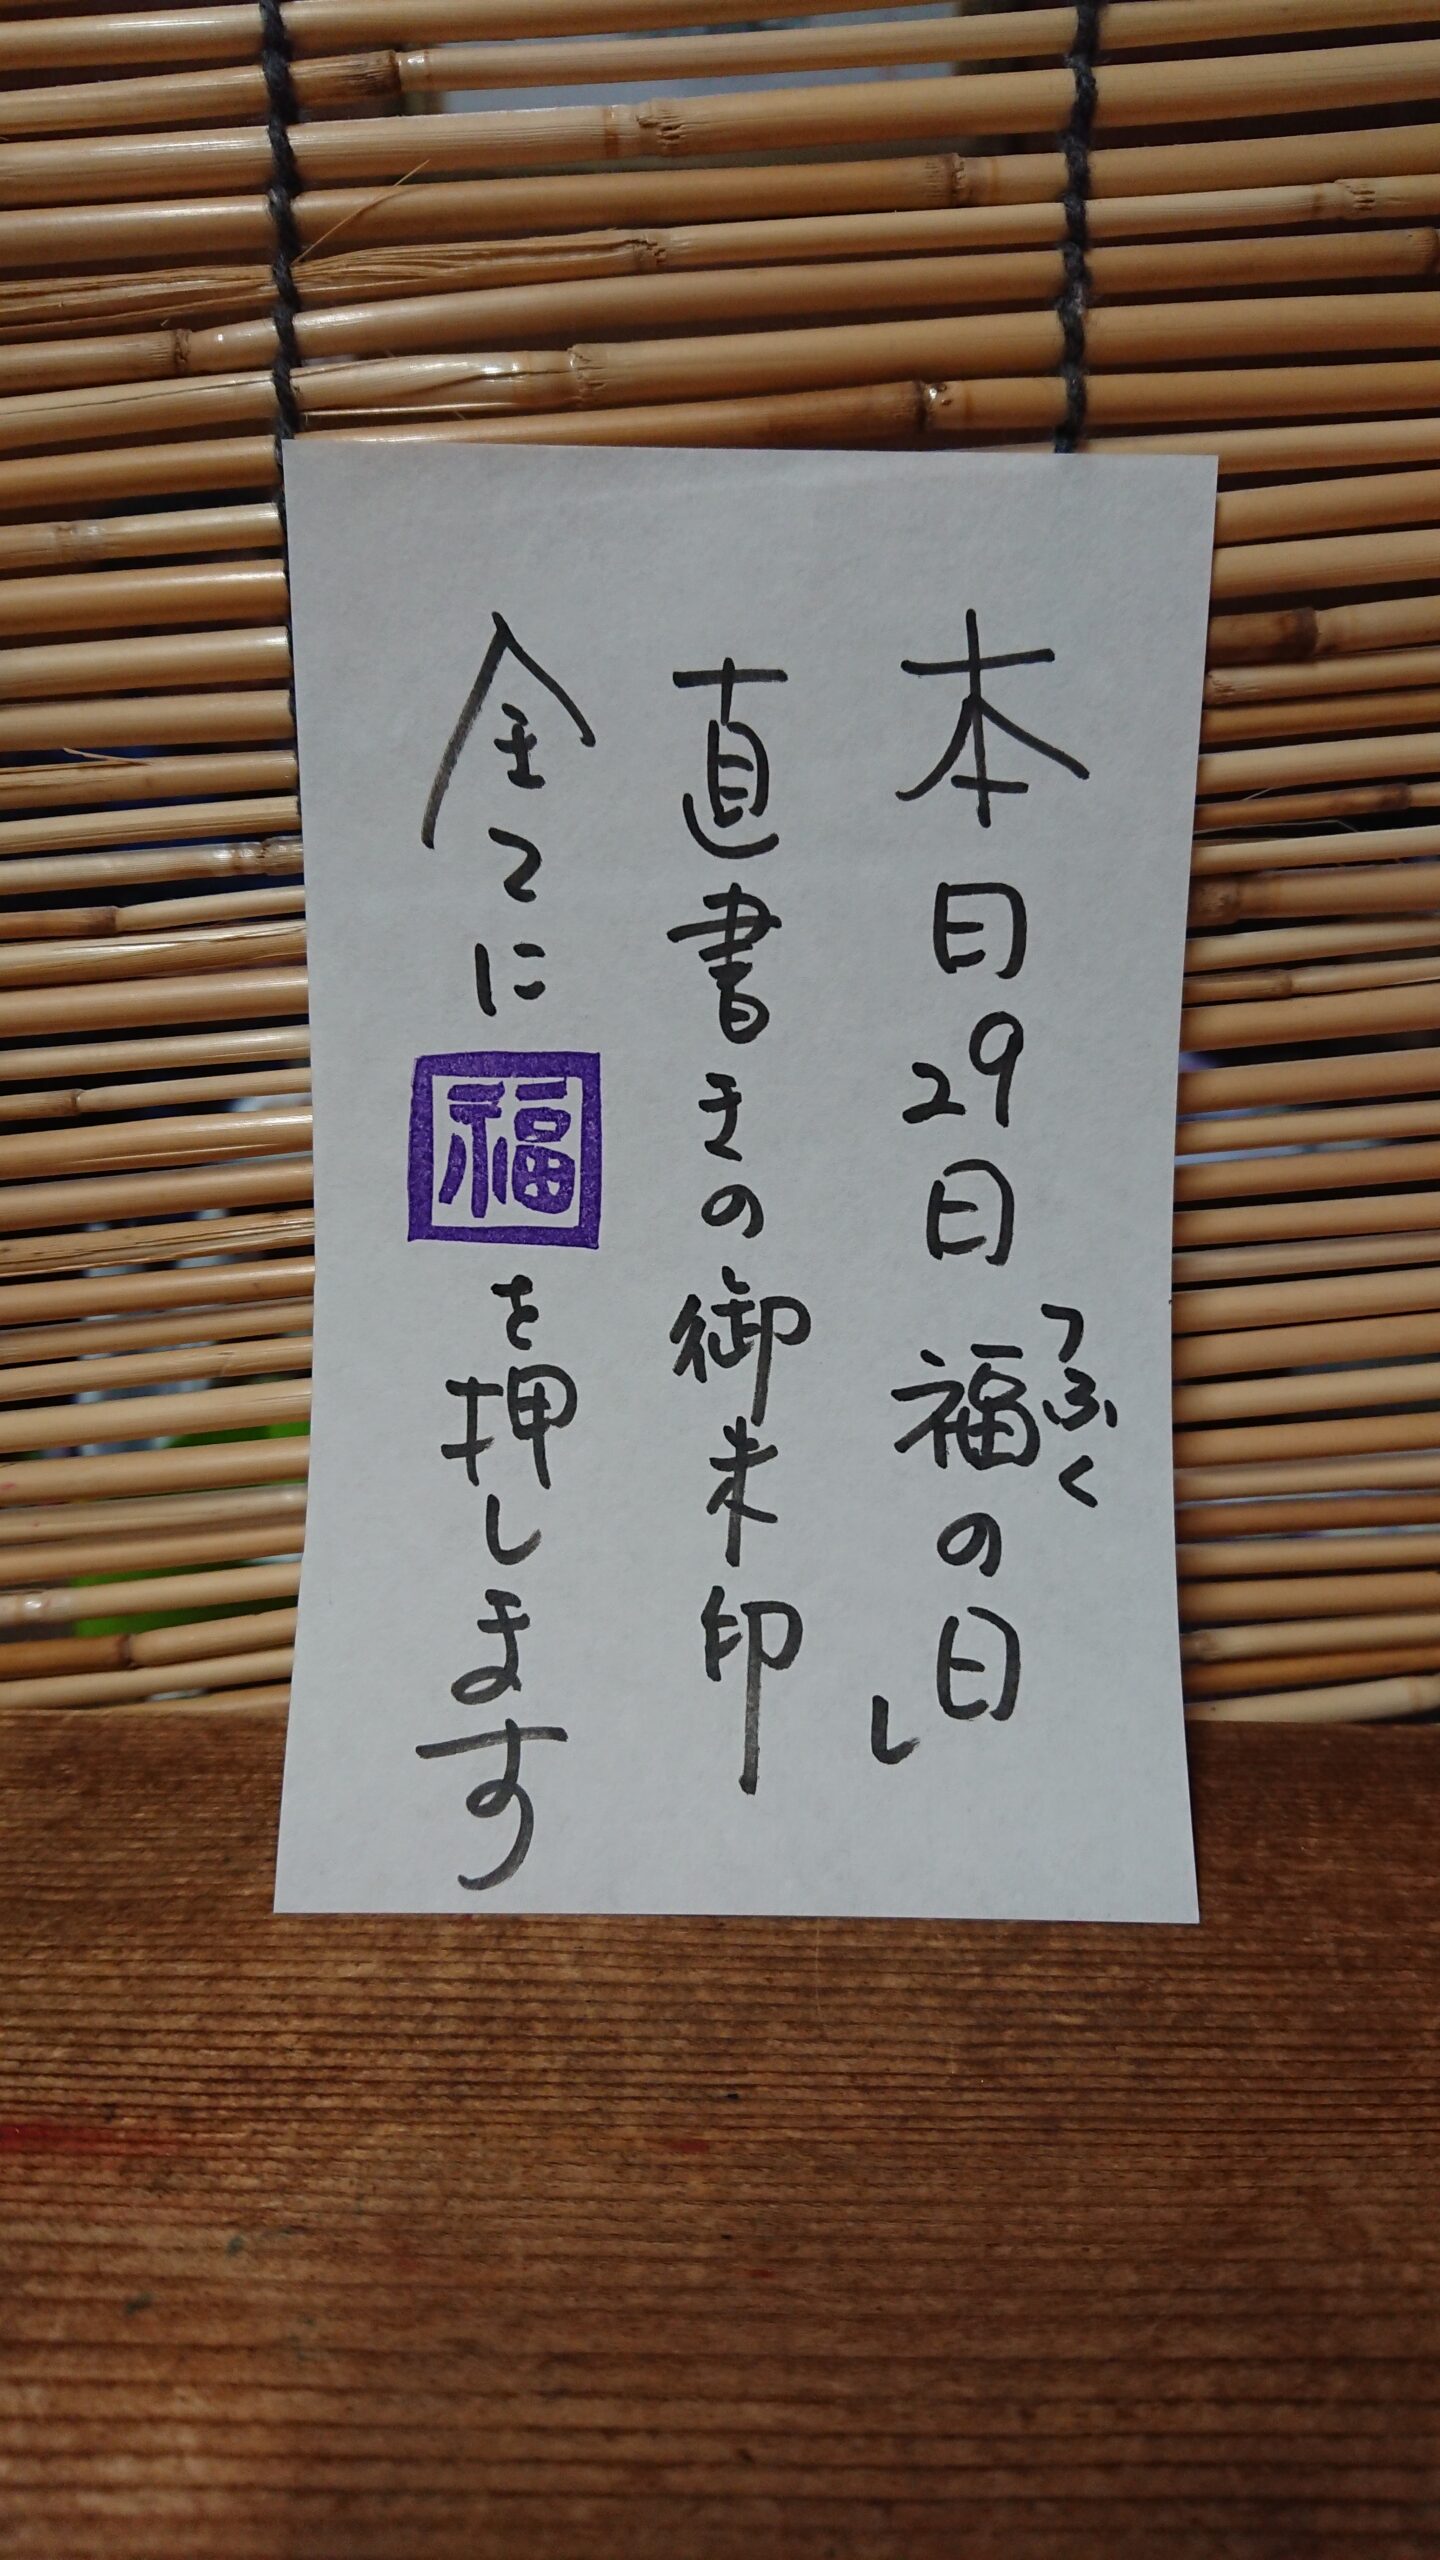 本日29日「福(ふく)の日」
直書きの御朱印
全てに福を押します